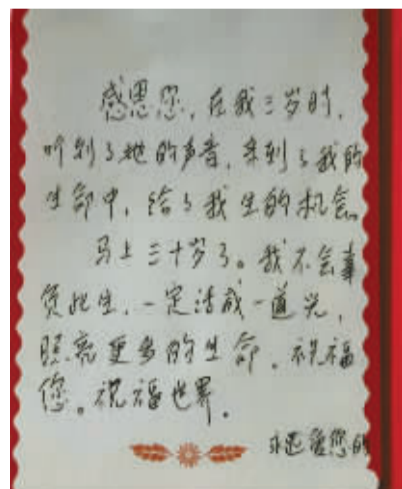 感恩您，在我三岁时，
听到了她的声音，来到了我的
生命中，给了我生的机会。
马上三十岁了。我不会辜
负此生，一定活成一道光，
照亮更多的生命。祝福
您。祝福世界。
永远爱您的